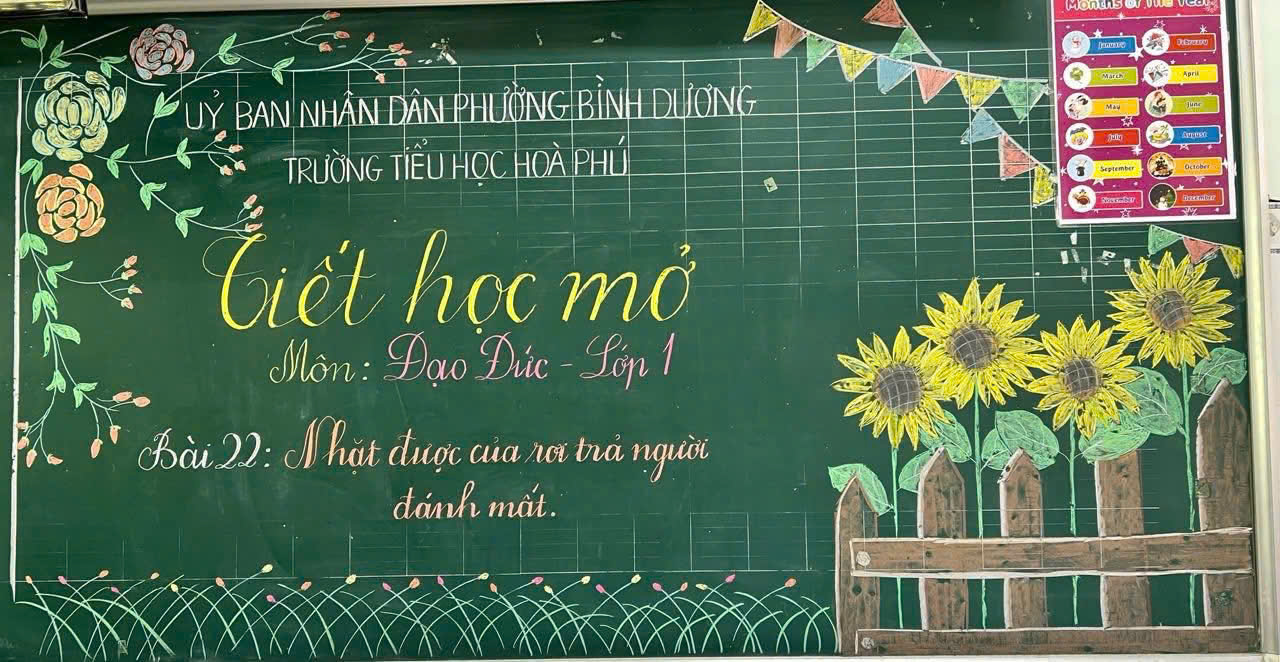 UỶ BAN NHÂN DÂN PHƯỜNG BÌNH DƯƠNG
TRƯỜNG TIỂU HỌC HOÀ PHÚ
Tiết học mở
Môn: Đạo Đức - Lớp 1
Bài 22: Nhặt được của rơi trả người
đánh mất.
Months of The Year
January February
March April
May June
July August
September October
November December